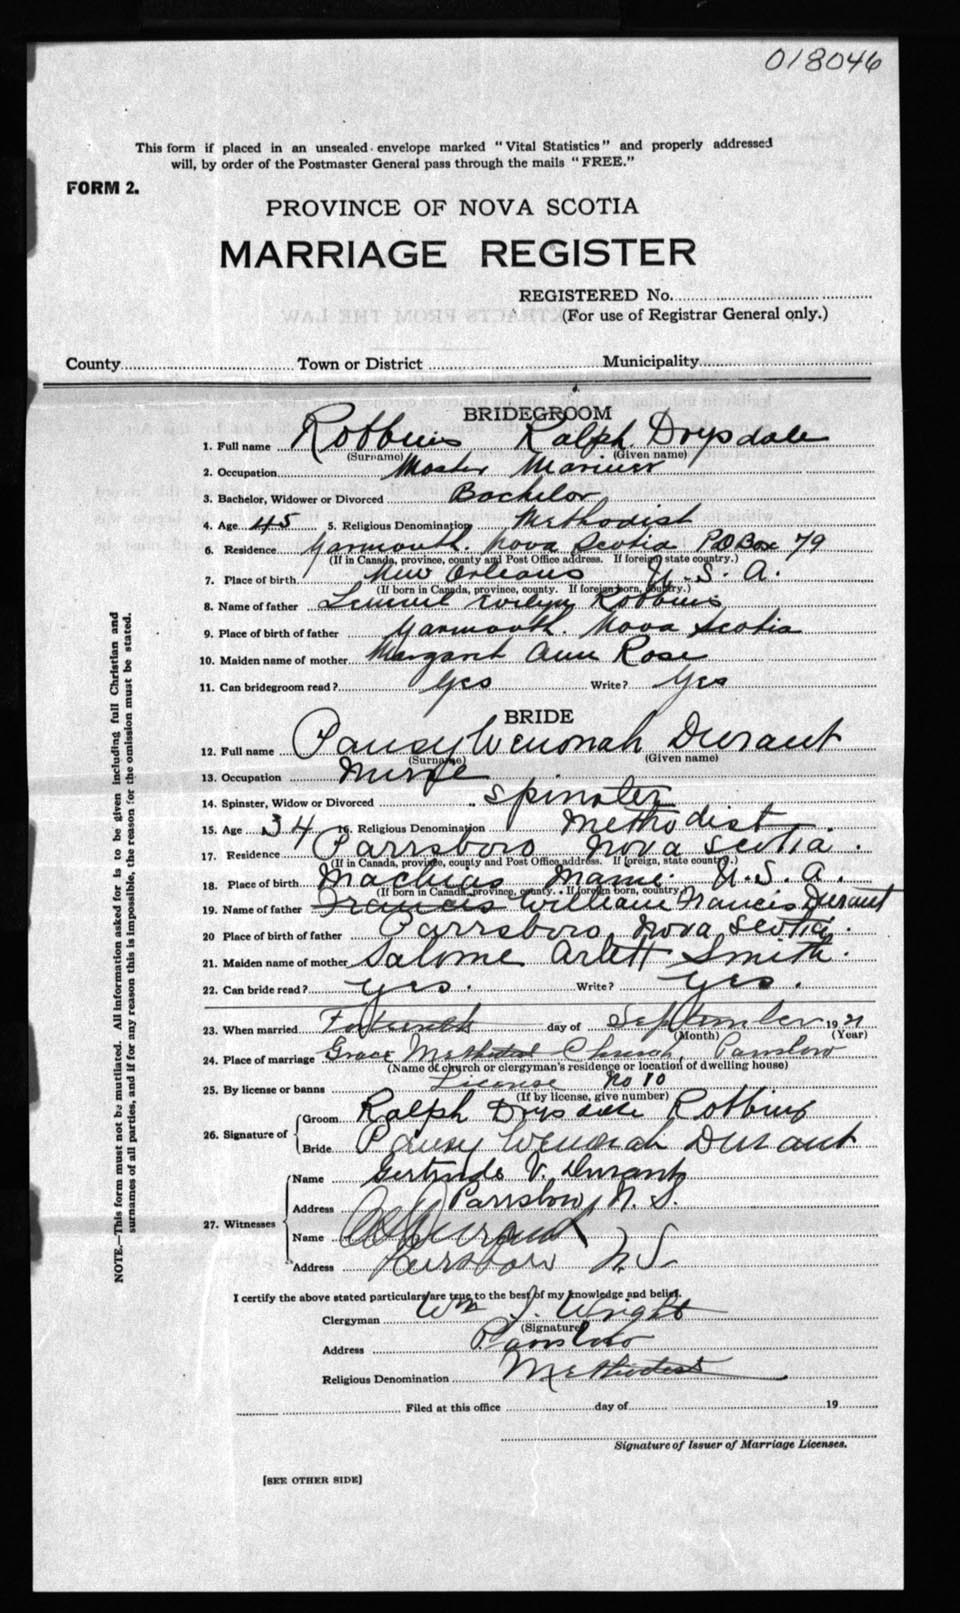 018046
This form if placed in an unsealed envelope marked "Vital Statistics" and properly addressed
will, by order of the Postmaster General pass through the mails "FREE."
FORM 2.
PROVINCE OF NOVA SCOTIA
MARRIAGE REGISTER
REGISTERED No.
(For use of Registrar General only.)
County Town or District Municipality
BRIDEGROOM
1. Full name Robbins Ralph Drysdale
(Surname) (Given name)
2. Occupation Master Mariner
3. Bachelor, Widower or Divorced Bachelor
4. Age 45 5. Religious Denomination Methodist
6. Residence Yarmouth. Nova Scotia P.O Box 79
(If in Canada, province, county and Post Office address. If foreign state country.)
7. Place of birth New Orleans U.S.A.
(If born in Canada, province, county. If foreign born, country.)
8. Name of father Lemuel Evelyn Robbins
9. Place of birth of father Yarmouth. Nova Scotia
10. Maiden name of mother Margaret Ann Rose
11. Can bridegroom read? Yes Write? Yes
BRIDE
12. Full name Pansy Wenonah Durant
(Surname) (Given name)
13. Occupation Nurse
14. Spinster, Widow or Divorced Spinster
15. Age 34 16. Religious Denomination Methodist
17. Residence Parrsboro Nova Scotia.
(If in Canada, province, county and Post Office address. If foreign, state country.)
18. Place of birth Machias Maine. U.S.A.
(If born in Canada, province, county. If foreign born, country.)
19. Name of father Francis William Francis Durant
20 Place of birth of father Parrsboro, Nova Scotia.
21. Maiden name of mother Salome Arlett Smith.
22. Can bride read? yes. Write? yes.
23. When married day of September 1921
(Month) (Year)
24. Place of marriage Grace Methodist Church, Parrsboro
(Name of church or clergyman's residence or location of dwelling house)
25. By license or banns License No 10
(If by license, give number)
26. Signature of Groom Ralph Drysdale Robbins
Bride Pansy Wenonah Durant
27. Witnesses Name Gertrude V. Durant
Address Parrsboro, N.S.
Name Durant
Address Parrsboro N.S.
I certify the above stated particulars are true to the best of my knowledge and belief.
Clergyman Wm J. Wright
(Signature)
Address Parrsboro
Religious Denomination Methodist
Filed at this office day of 19
Signature of Issuer of Marriage Licenses.
[SEE OTHER SIDE]
NOTE.—This form must not be mutilated. All information asked for is to be given including full Christian and
surnames of all parties, and if for any reason this is impossible, the reason for the omission must be stated.